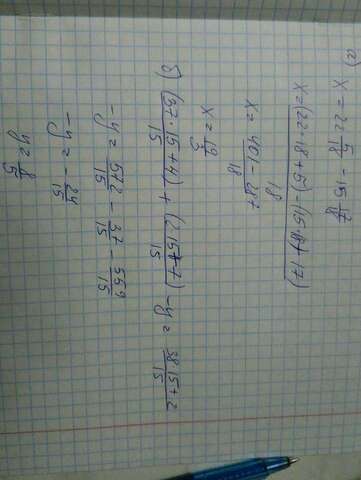 а) x = 22 5/18 - 15 17/18
x = (22·18+5) - (15·18+17) / 18
x = 401 - 287 / 18
x = 19/3
б) (37·15+4)/15 + (2·15+7)/15 - y = 38·15+2/15
-y = 572/15 - 37/15 - 559/15
-y = - 24/15
y = 8/5